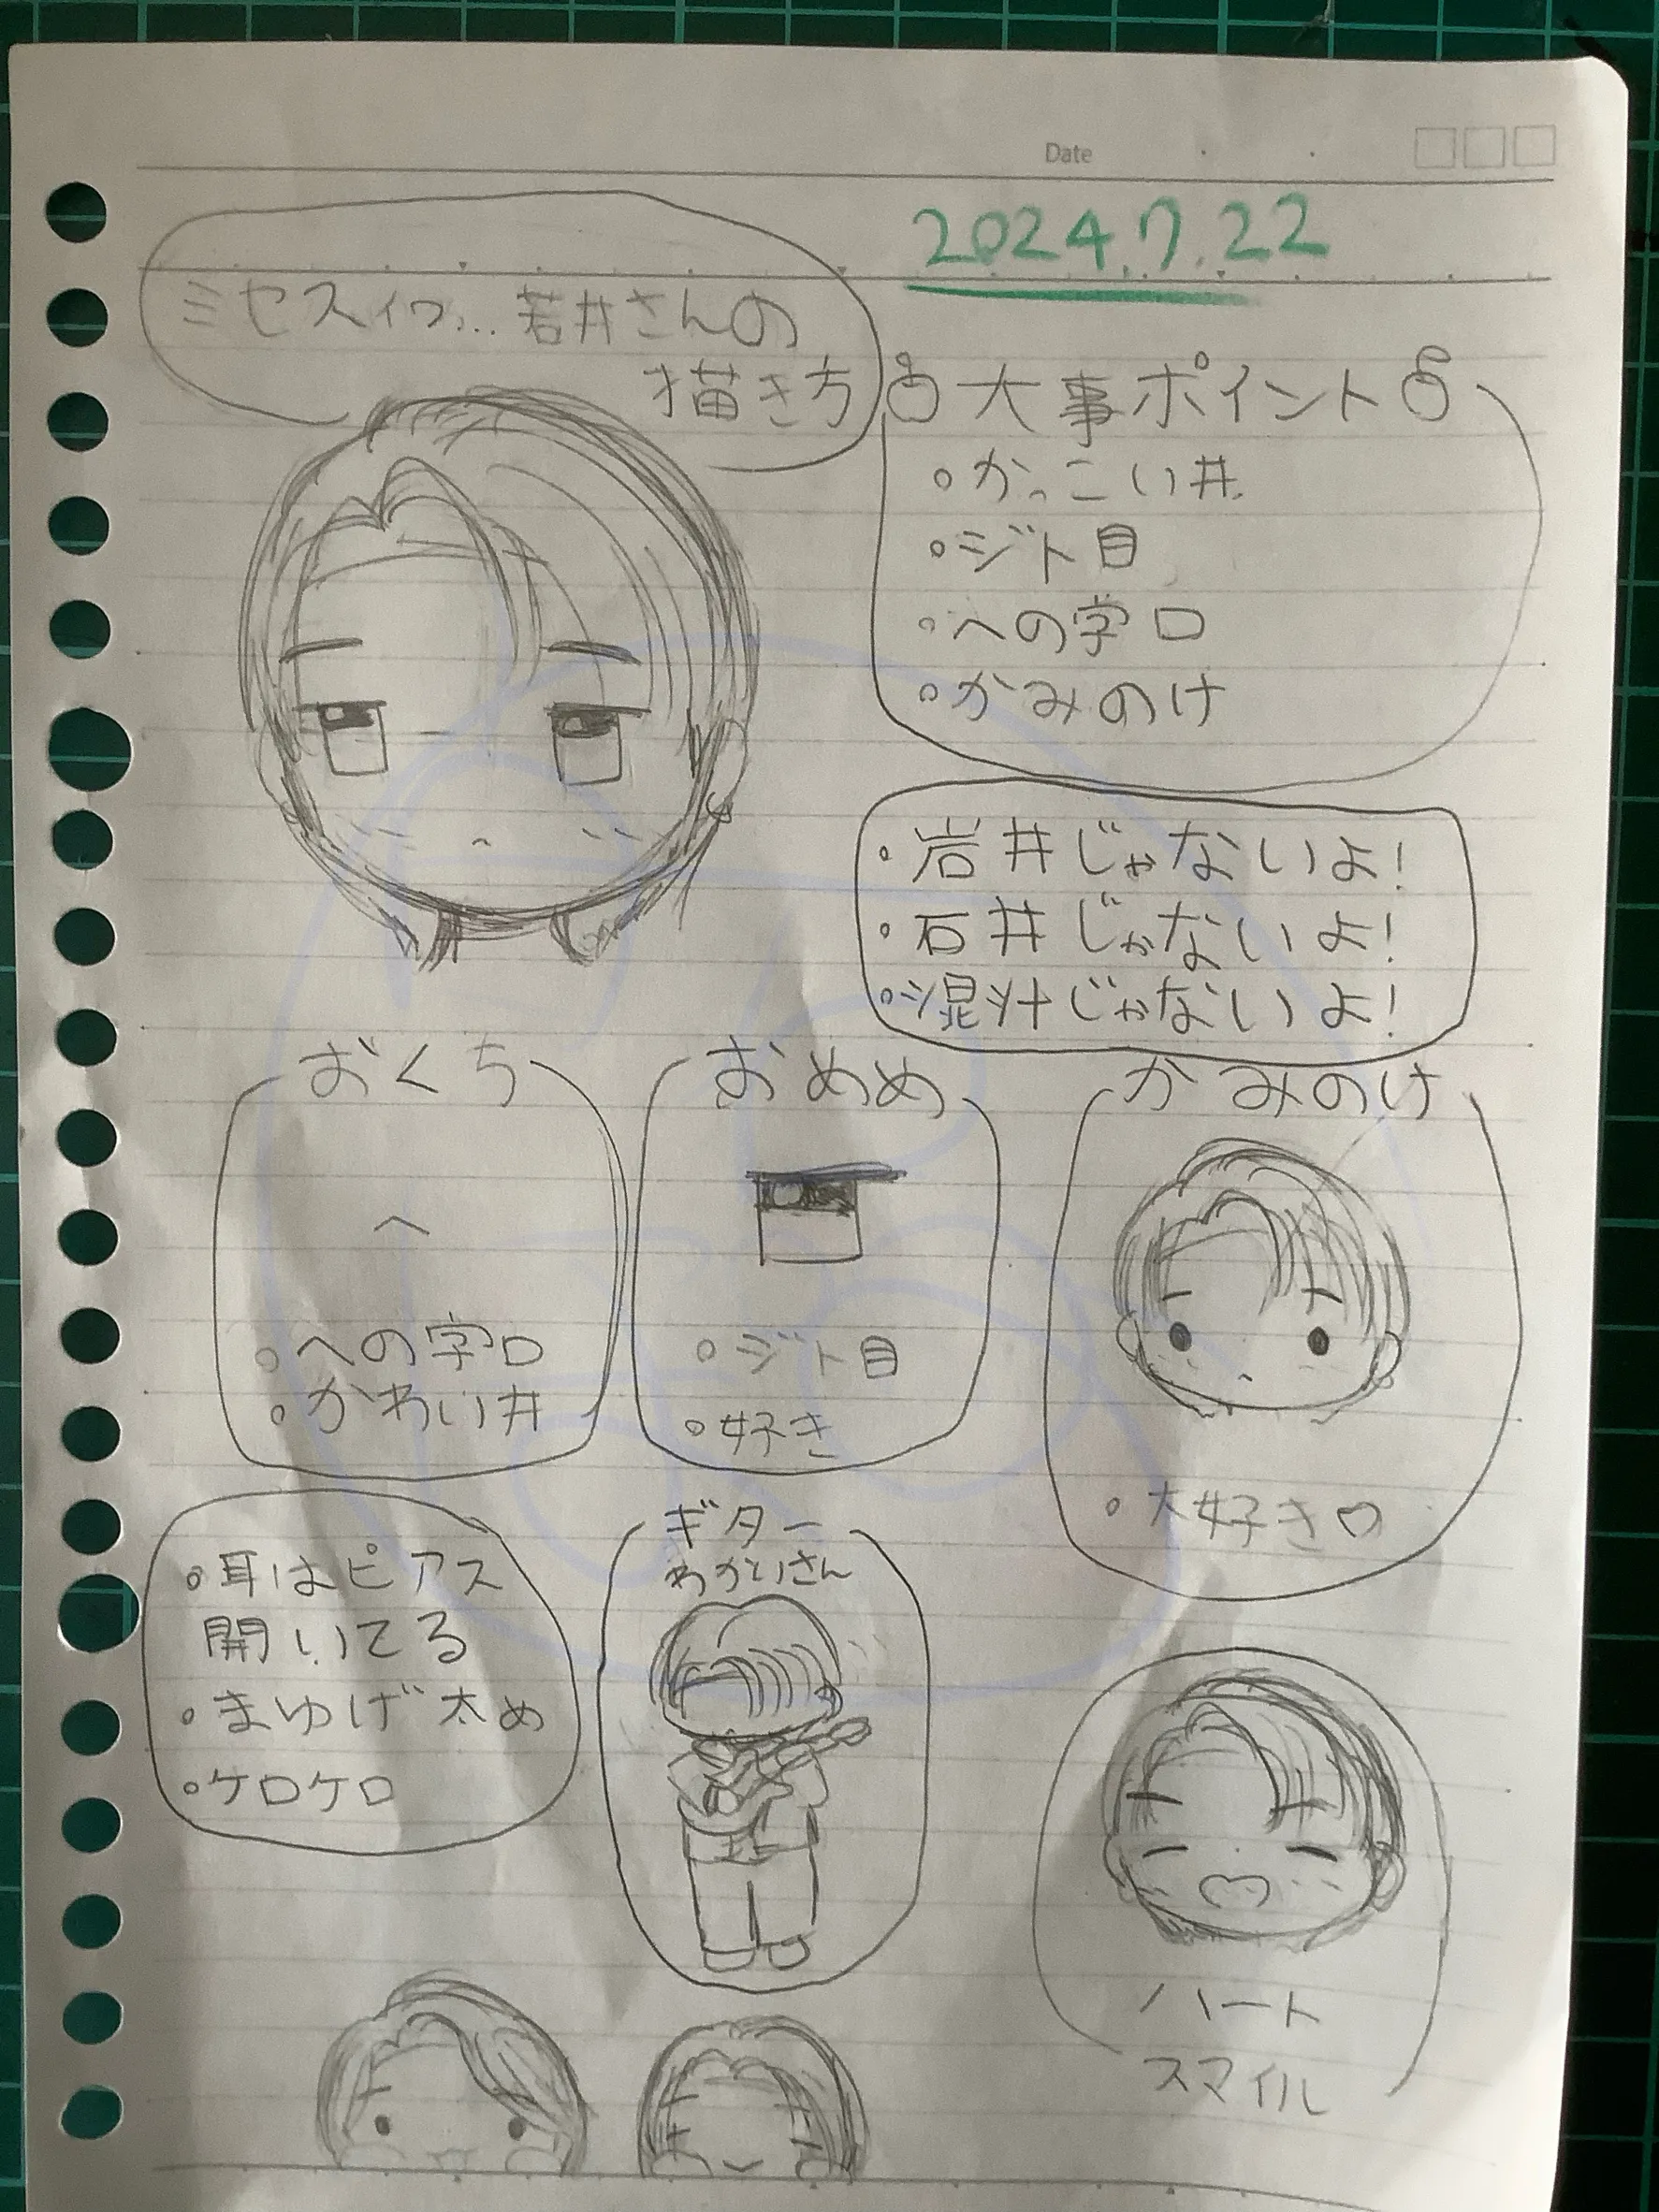 Date
2024.7.22
ミセスイワ…若井さんの
描き方
大事ポイント
かっこい井
ジト目
への字口
かみのけ
岩井じゃないよ!
石井じゃないよ!
混汁じゃないよ!
おくち
への字口
かわいい井
おめめ
ジト目
好き
かみのけ
大好き♡
耳はピアス
開いてる
まゆげ太め
ケロケロ
ギター
わかいさん
ハート
スマイル